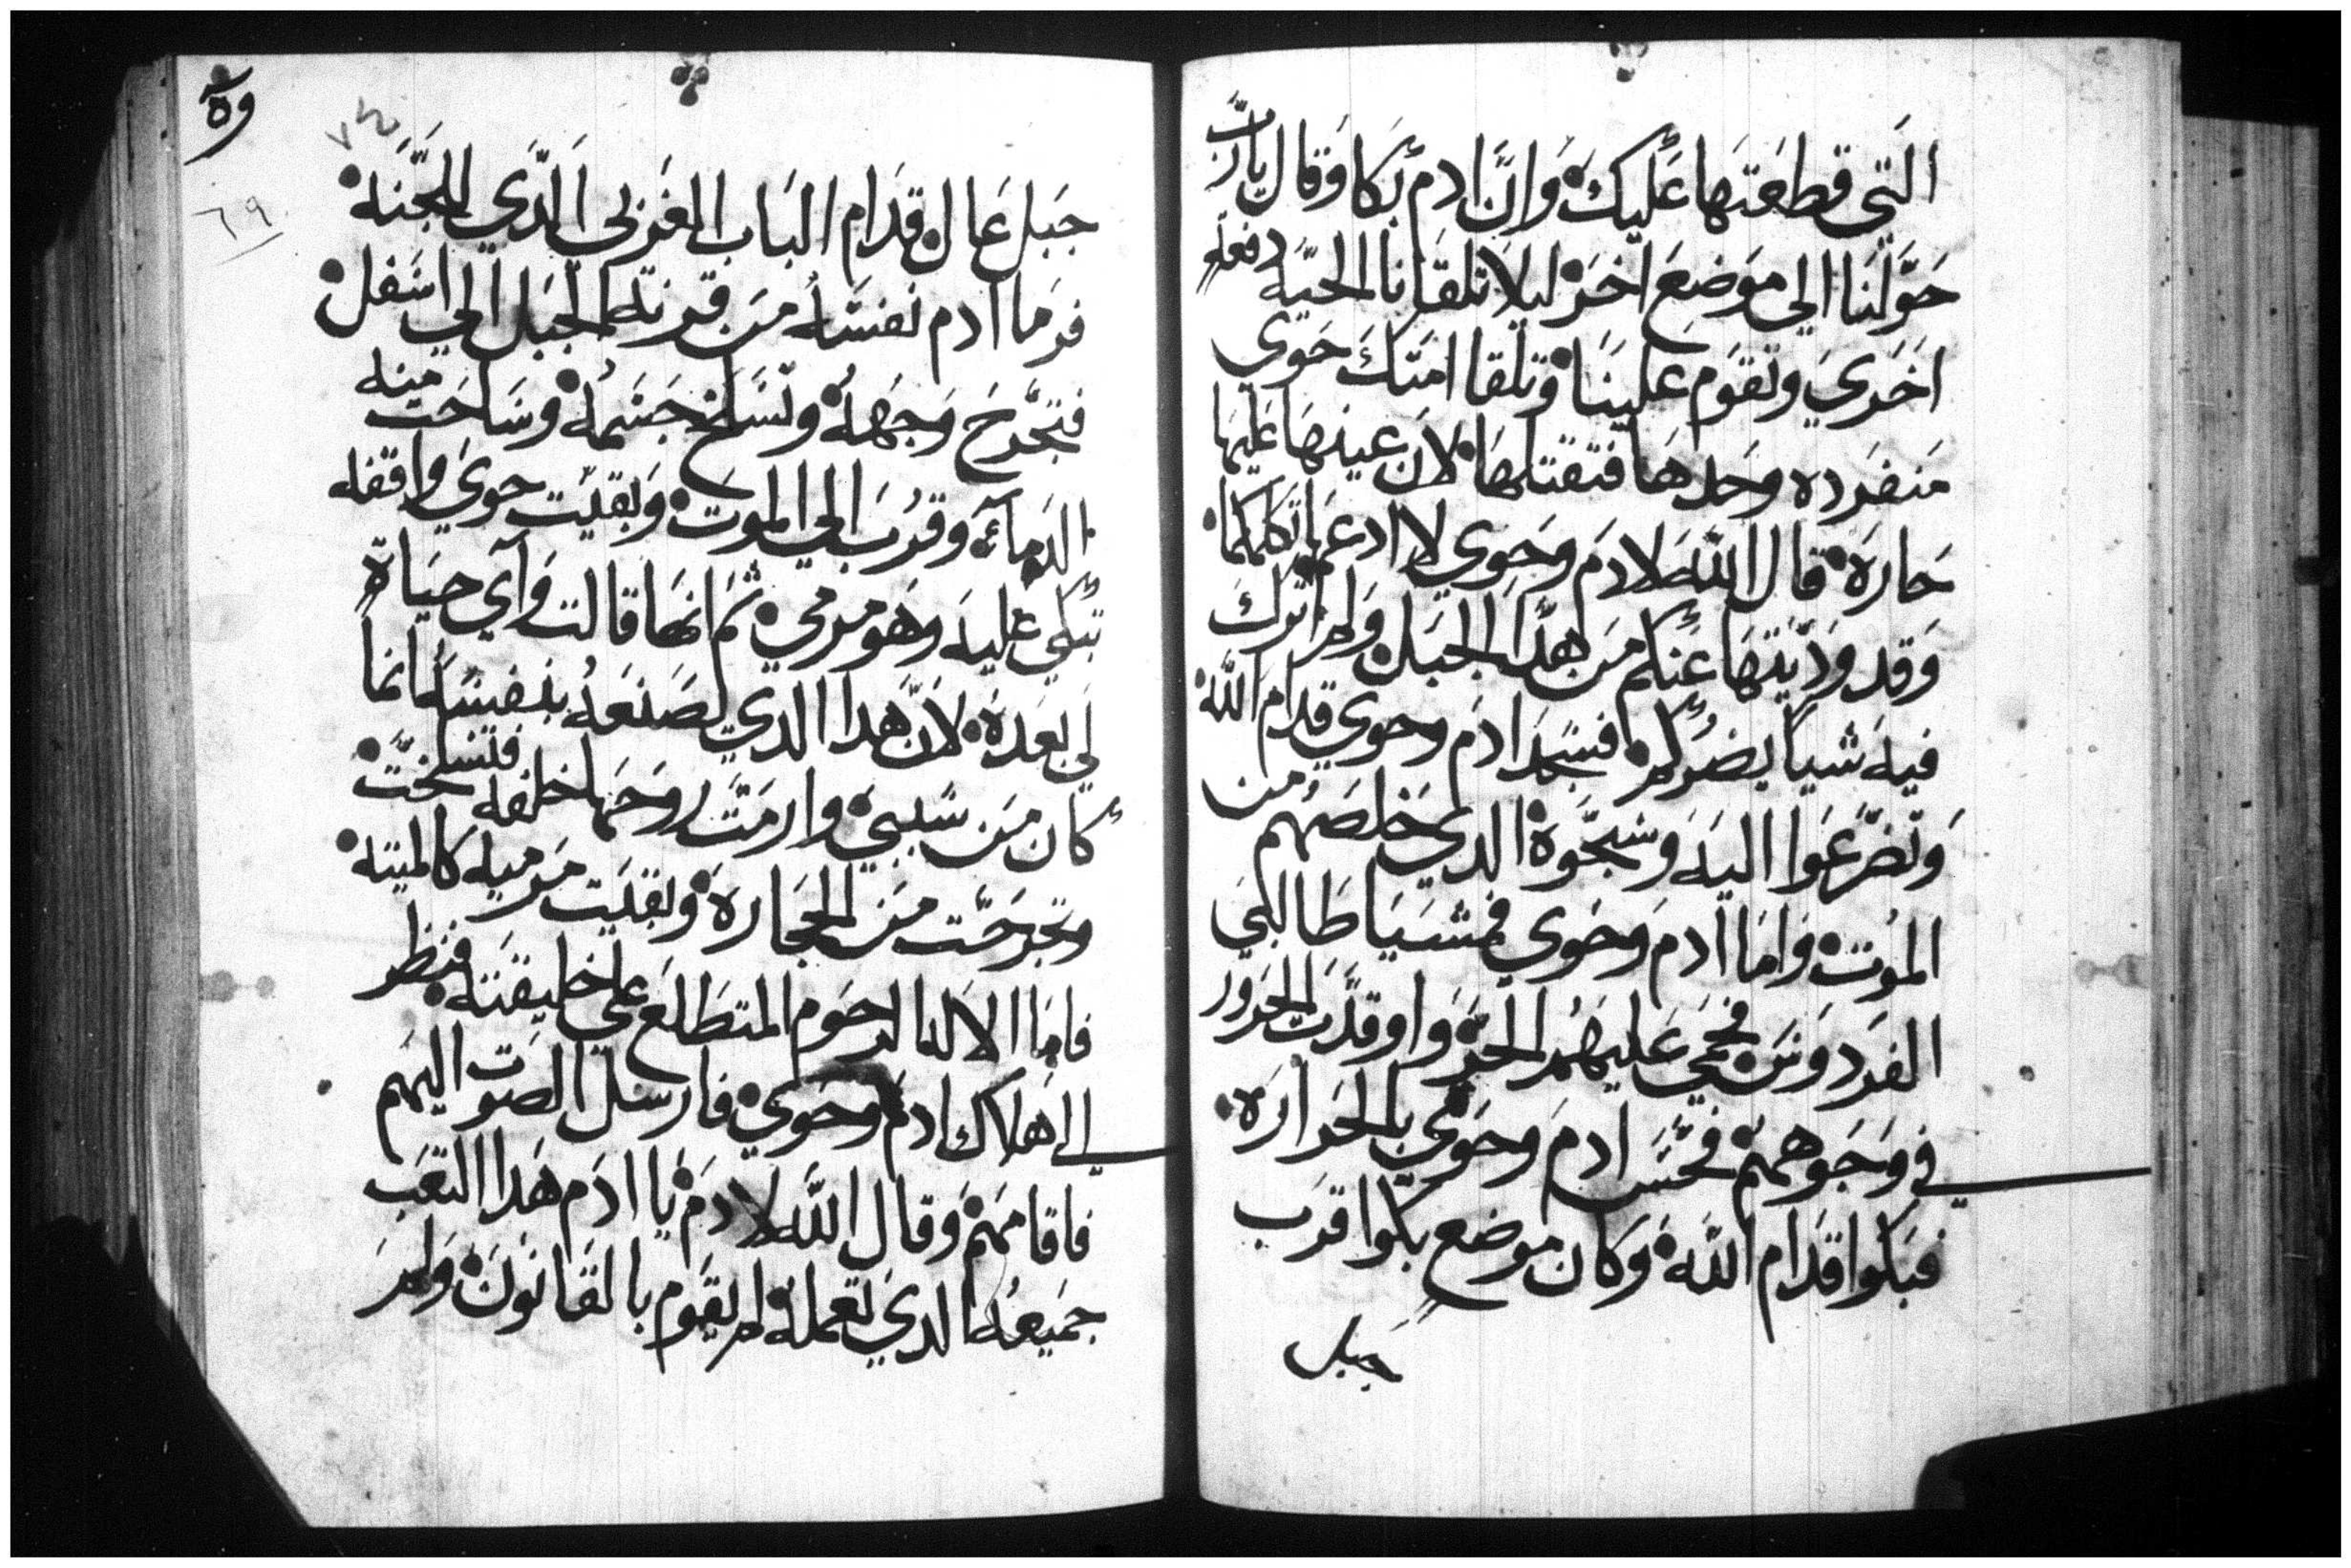 التي قطعتها عليك وان ادم بكا وقال يارب
حولنا الي موضع اخر ليلا تلقانا الحيه دفعه
اخري وتقوم علينا وتلقا امتك حوي
منفرده وحدها فتقتلها لان عينها عليها
حاره قال الله لادم وحوي لا ادعها تكلمكما
وقد وديتها عنكم من هدا الجبل ولم اترك
فيه شيا يضركم فسجد ادم وحوي قدام الله
وتضرعوا اليه وسبحوه الدي خلصهم من
الموت واما ادم وحوي فمشيا طالبي
الفردوس فحمي عليهم الحر واوقدت الحرور
في وجوههم فحس ادم وحوي بالحراره
فبكوا قدام الله وكان موضع بكوا قرب
جبل
وه
٦٩
جبل عال قدام الباب الغربي الدي للجنه
فرما ادم نفسه من قرنه الجبل الي اسفل
فتجرح وجهه وتسلخ جسمه وساحت منه
الدماء وقرب الي الموت وبقيت حوي واقفه
تبكي عليه وهو مرمي ثم انها قالت واي حياة
لي بعده لان هدا الدي صنعه بنفسه انما
كان من سببي وارمت روحها خلفه فتسلخت
وتجرحت من الحجاره وبقيت مرميه كالميته
فاما الاله الرحوم المتطلع علي خليقته فنظر
الي هلاك ادم وحوي فارسل الصوت اليهم
فاقامهم وقال الله لادم يا ادم هدا التعب
جميعه الدي تعمله لم يقوم بالقانون ولم